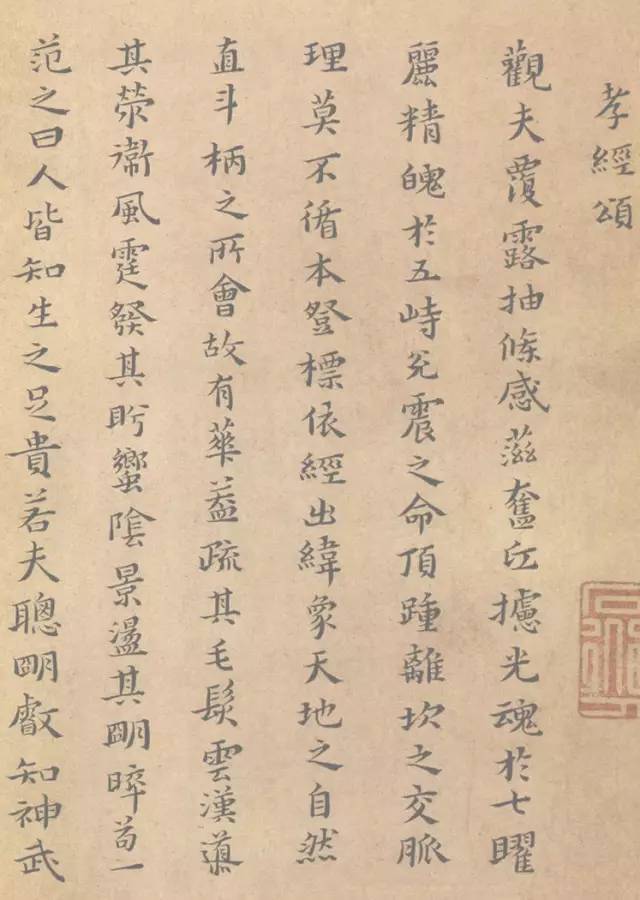 孝經頌
觀夫覆露抽條感滋奮丘攄光魂於七曜
麗精魄於五峙兊震之命頂踵離坎之交脈
理莫不循本登標依經出緯象天地之自然
直斗柄之所會故有華葢疏其毛髮雲漢導
其滎衛風霆發其肸蠁陰景盪其明晬苟一
范之曰人皆知生之足貴若夫聰明叡知神武